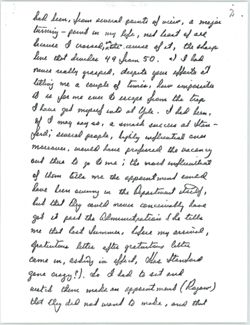 had been, from several points of view, a major
turning-point in my life, not least of all
because I crossed, in the course of it, the sharp
line that divides 49 from 50. I had
never really grasped, despite your efforts at
telling me a couple of times, how impossible
it is for me ever to escape from the trap
I have got myself into at Yale. I had been,
if I may say so, a smash success at Stan-
ford; several people, highly influential ones
moreover, would have preferred the vacancy
and thus to go to me; the most influential
of them tells me the appointment would
have been among in the Department itself,
but that they could never conceivably have
got it past the Administration (he tells
me that last Summer, before my arrival,
gratuitous letter after gratuitous letter
came in, asking in effect, Has Stanford
gone crazy?). So I had to sit and
watch them make an appointment
that they did not want to make, and that